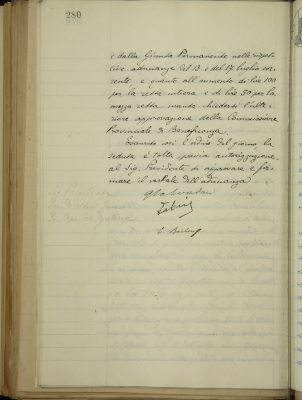 280
e dalla Giunta Permanente nelle rispet-
tive adunanze del 13 e del 17 luglio cor-
rente, e quanto all'aumento di lire 100
per la retta intiera e di lire 50 per la
mezza retta manda chiedersi l'ulte-
riore approvazione della Commissione
Provinciale di Beneficenza.
Esaurito così l'ordine del giorno la
seduta è tolta previa autorizzazione
al Sig. Presidente di approvare e fir-
mare il verbale dell'adunanza.